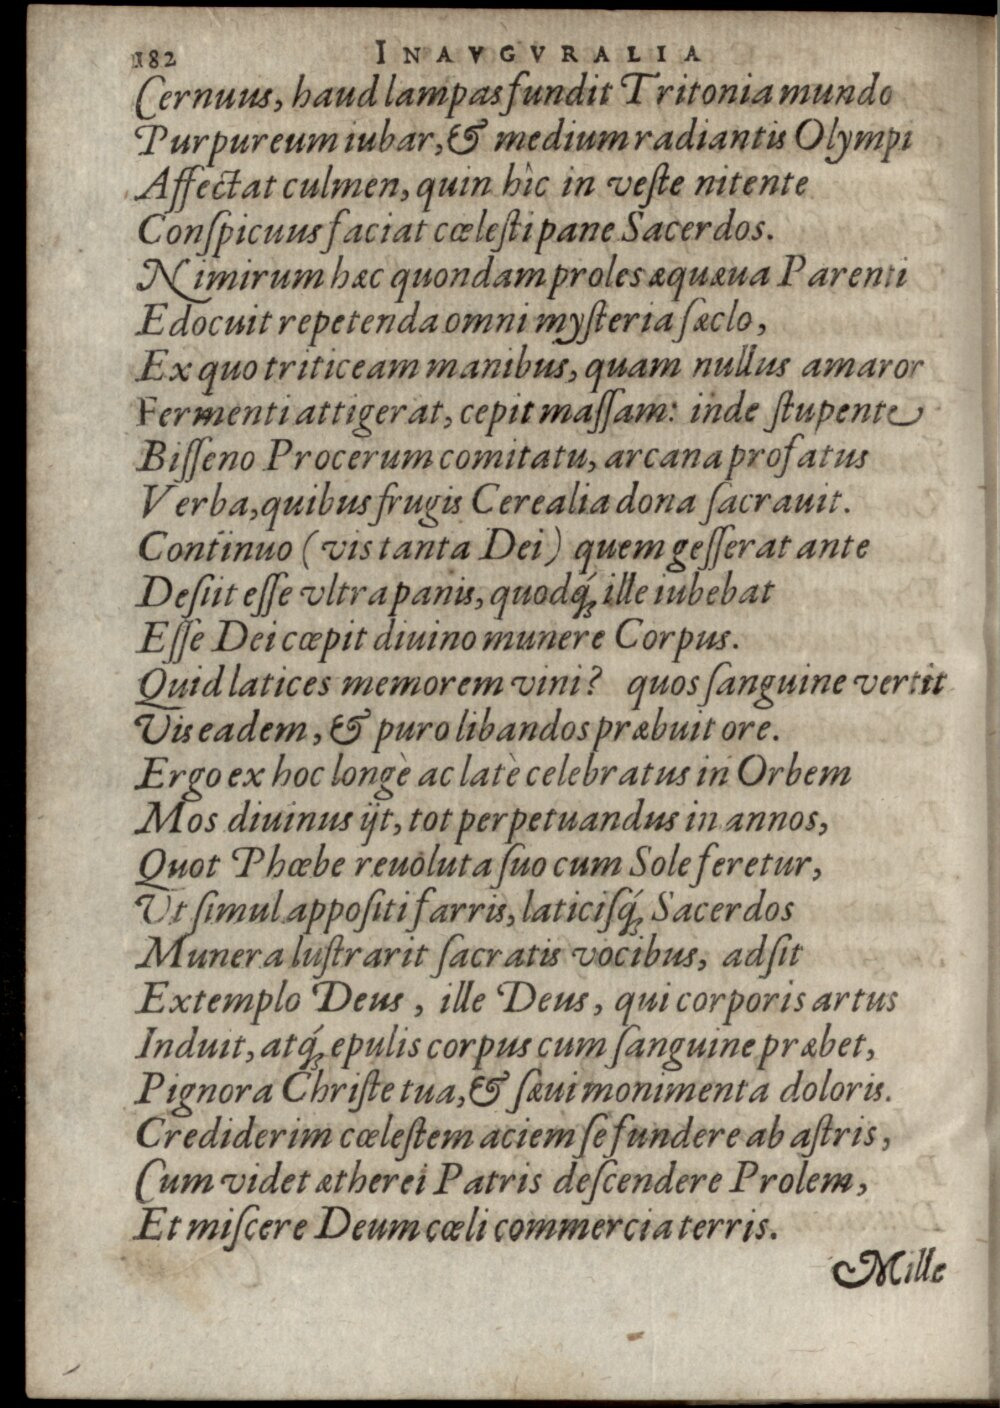 182 INAVGVRALIA
Cernuus, haud lampas fundit Tritonia mundo
Purpureum iubar, & medium radiantis Olympi
Affectat culmen, quin hìc in veſte nitente
Conſpicuus faciat cœleſti pane Sacerdos.
Nimirum hæc quondam proles æquæua Parenti
Edocuit repetenda omni myſteria ſæclo,
Ex quo triticeam manibus, quam nullus amaror
Fermenti attigerat, cepit maſſam: inde ſtupente
Biſſeno Procerum comitatu, arcana profatus
Verba, quibus frugis Cerealia dona ſacrauit.
Continuo (vis tanta Dei) quem geſſerat ante
Deſiit eſſe vltra panis, quodq́; ille iubebat
Eſſe Dei cœpit diuino munere Corpus.
Quid latices memorem vini? quos ſanguine vertit
Vis eadem, & puro libandos præbuit ore.
Ergo ex hoc longè ac latè celebratus in Orbem
Mos diuinus ijt, tot perpetuandus in annos,
Quot Phœbe reuoluta ſuo cum Sole feretur,
Vt ſimul appoſiti farris, laticiſq́; Sacerdos
Munera luſtrarit ſacratis vocibus, adſit
Extemplo Deus, ille Deus, qui corporis artus
Induit, atq́; epulis corpus cum ſanguine præbet,
Pignora Chriſte tua, & ſæui monimenta doloris.
Crediderim cœleſtem aciem ſe fundere ab aſtris,
Cum videt ætherei Patris deſcendere Prolem,
Et miſcere Deum cœli commercia terris.
Mille